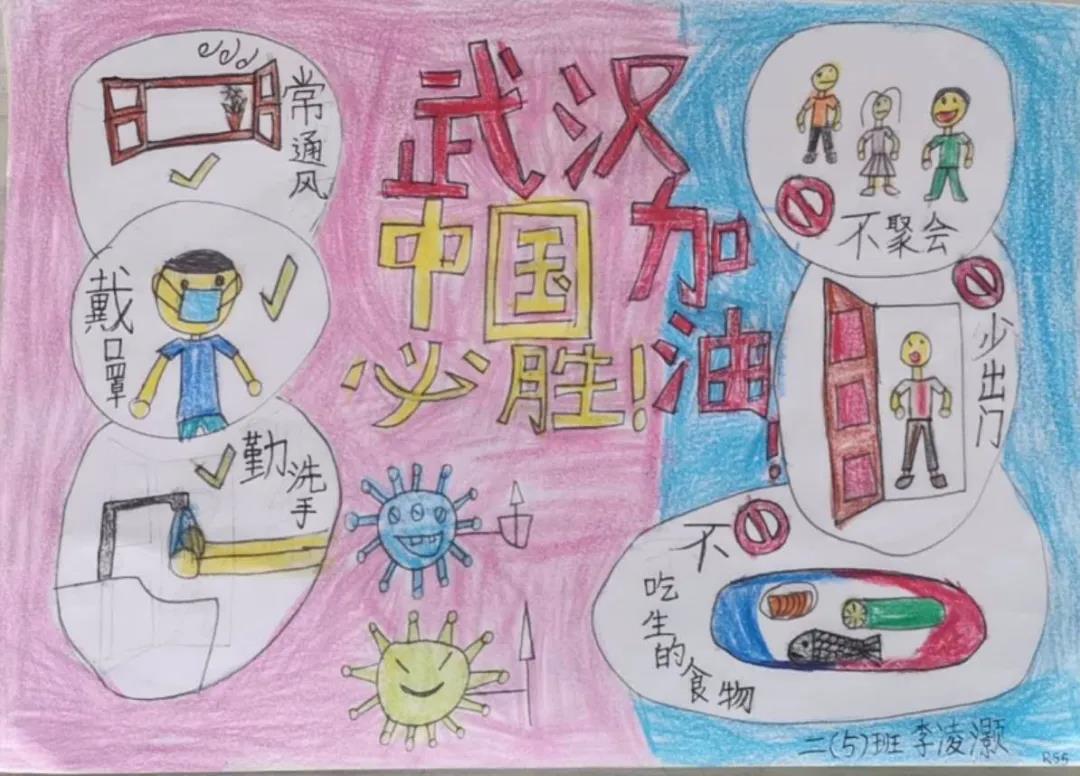 武汉加油!
中国必胜!
常通风
戴口罩
勤洗手
不聚会
少出门
不吃生的食物
二(5)班 李凌灏
RSS